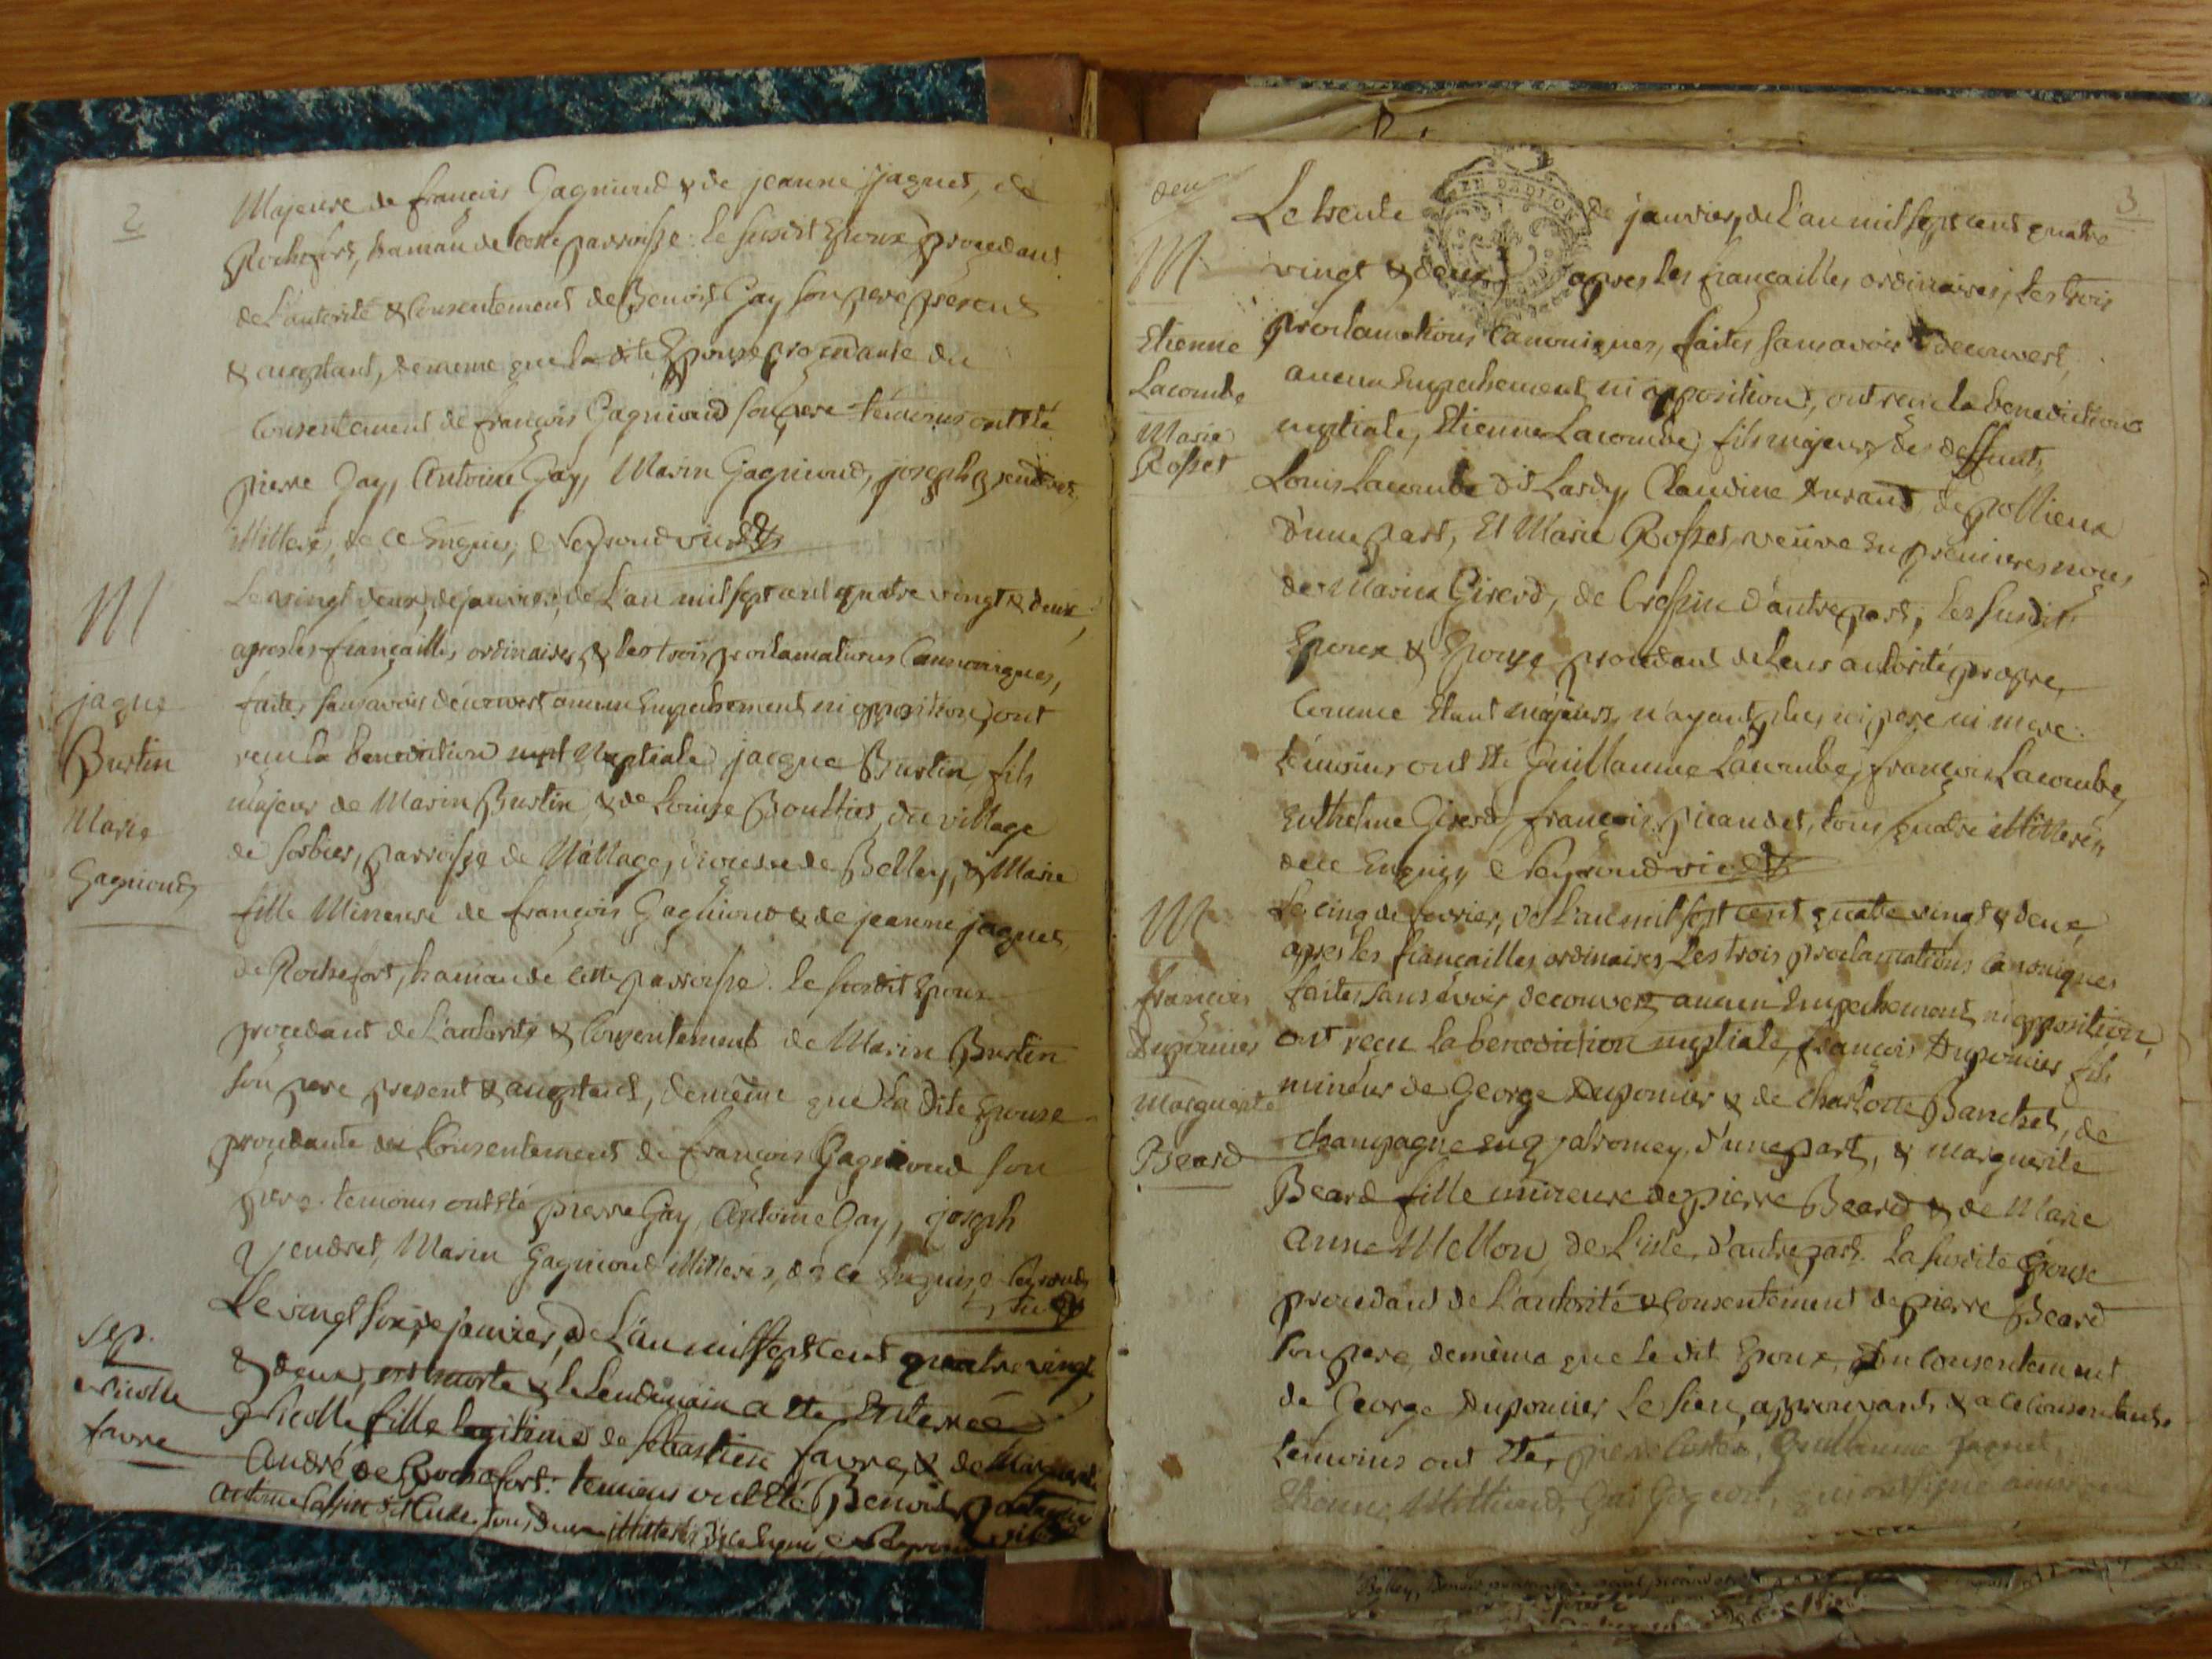 2
Majeure de francois Gagnioud & de jeanne jaquet, de
Rochefort, hamau de cette parroisse. le susdit Epoux procedant
de l'autorité & Consentement de Benoit Gay son pere present
& aceptant, de meme que la dite Epouse procedante du
Consentement de françois Gagnioud son pere. témoins ont été
pierre Gay, Antoine Gay, Marin Gagnioud, joseph
illiteré, de ce Enquis,
M
Le vingt deux de janvier, de L'an mil sept cent quatre vingt & deux,
apres les fiançailles ordinaires, & les trois proclamations Cannoniques,
faites sans avoir decouvert aucun Empechement ni opposition, ont
jaque
Burtin
recu la benediction nupt Nuptiale jacque Burtin, fils
majeur de Marin Burtin, & de Louise Boultier, du village
Marie
Gagnioud
de Sorbier, parroisse de Nattage, diocese de Belley, & Marie
fille Mineure de françois Gagnioud & de jeanne jaquet
de Rochefort, hamau de cette parroisse. le susdit Epoux
procedant de L'autorité & Consentement de Marin Burtin
son pere present & aceptant, de meme que la dite Epouse
procedante du Consentement de francois Gagnioud son
pere. temoins ont été pierre Gay, Antoine Gay, joseph
Marin Gagnioud illiterés, de ce Enquis,
Le vingt six de janvier, de L'an mil sept cent quatre vingt
sep.
& deux, est morte & le Lendemain a été Enterrée
Nicolle
Nicolle fille legitime de sebastien favre, & de Marguerite
favre
André de Rochefort. temoins ont été Benoit
antoine tous deux illiterés de ce Enquis
3
Le trente de janvier, de L'an mil sept cent quatre
M
vingt & deux, apres les fiançailles ordinaires, les trois
Etienne
Lacombe
proclamations Canoniques, faites sans avoir decouvert
aucun Empechement, ni opposition, ont reçu la benediction
Marie
Rosset
nuptiale, Etienne Lacombe, fils majeur, des deffunts
Louis Lacombe dit Lardy, Claudine Durand, de pollieux
d'une part, Et Marie Rosset, veuve En premieres noces
de Marin Girerd, de Cressin d'autre part, Les susdits
Epoux & Epouse procedant de Leur autorité propre,
Comme Etant majeurs, n'ayant plus ni pere ni mere.
témoins ont été Guillaume Lacombe, françois Lacombe,
Enthelme Girerd, françois picaudet, tous quatre illiterés
de ce Enquis,
M
Le cinq de fevrier, de L'an mil sept cent quatre vingt & deux,
apres les fiancailles ordinaires, Les trois proclamations canoniques
francois
Duponier
faites sans avoir decouvert aucun Empechement, ni opposition,
ont reçu la benediction nuptiale, françois Duponier fils
Marguerite
mineur de George Duponier & de Charlotte Banchet, de
Beard
champagne en valromey, d'une part, & marguerite
Beard fille mineure de pierre Beard & de Marie
anne Mellon, de L'isle, d'autre part. La susdite épouse
procedant de l'autorité & Consentement de pierre Beard
son pere, de mème que le dit Epoux, du consentement
de George Duponier Le sien, approuvant, & a ce consentant.
temoins ont été, pierre Guillaume